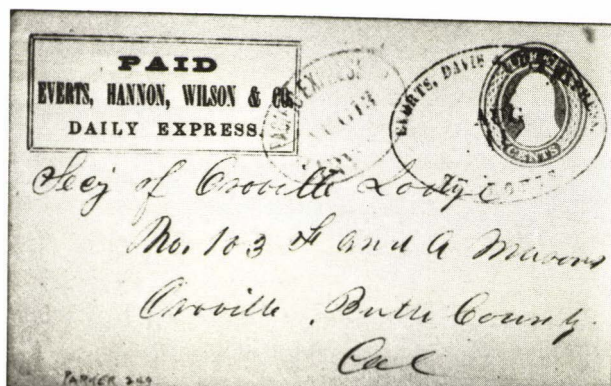 PAID
EVERTS, HANNON, WILSON & CO.
DAILY EXPRESS.
EVERTS, DAVIS
CENTS
Secy of Oroville Lodge
No. 103 F and A Masons
Oroville, Butte County
Cal
PARKER 240